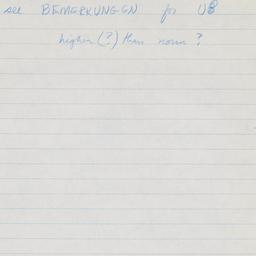 see BEMERKUNGEN for U8
higher (?) than norm ?